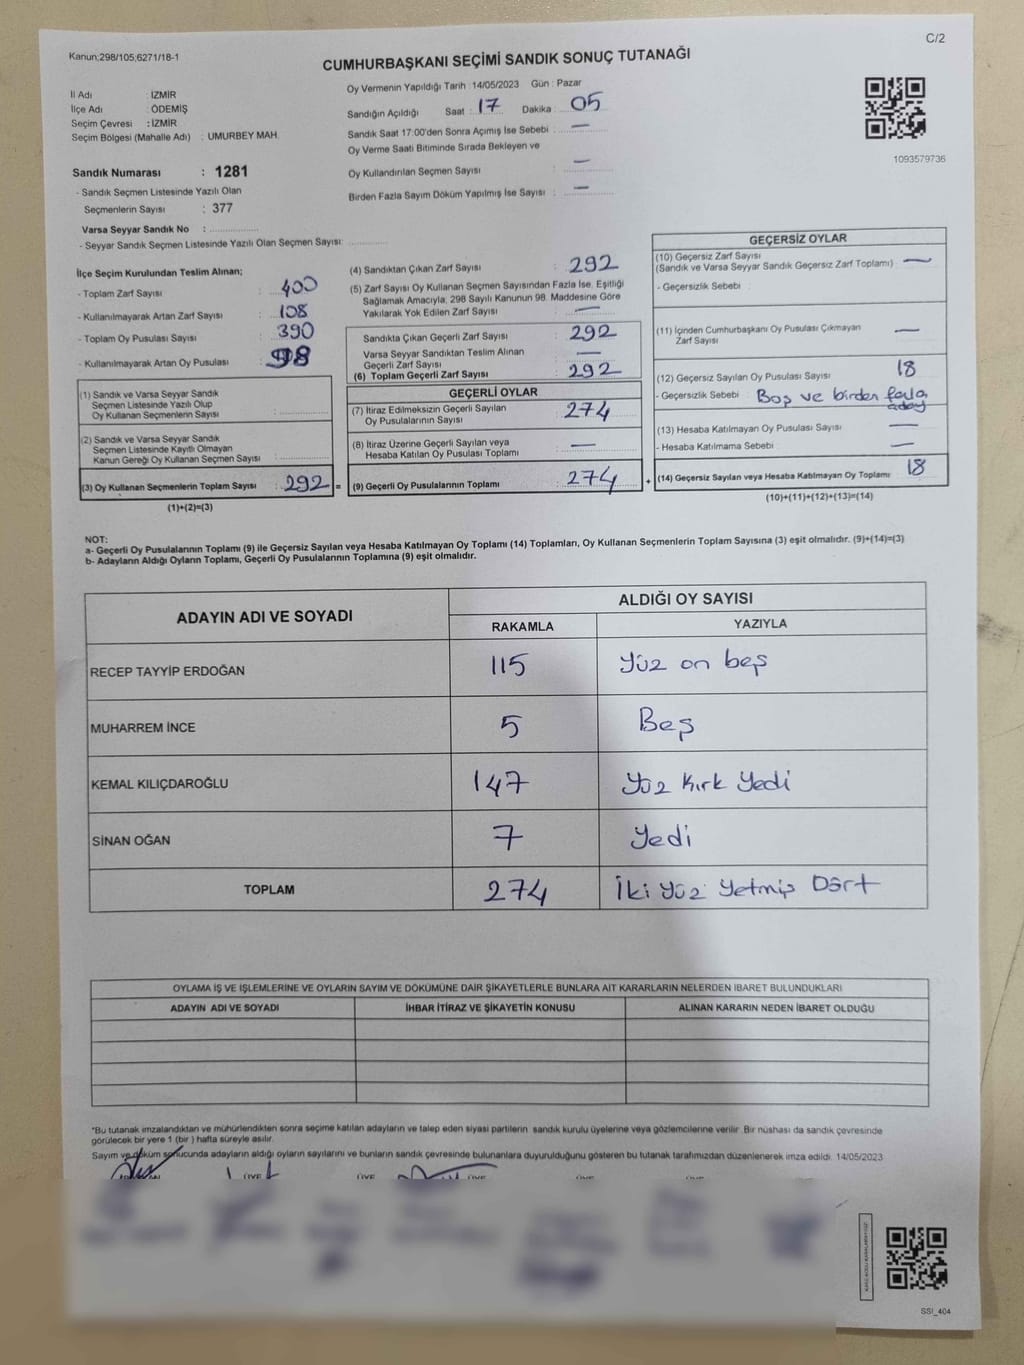 C/2
Kanun;298/105;6271/18-1
CUMHURBAŞKANI SEÇİMİ SANDIK SONUÇ TUTANAĞI
İl Adı : İZMİR
İlçe Adı : ÖDEMİŞ
Seçim Çevresi : İZMİR
Seçim Bölgesi (Mahalle Adı) : UMURBEY MAH.
Sandık Numarası : 1281
- Sandık Seçmen Listesinde Yazılı Olan
Seçmenlerin Sayısı : 377
Varsa Seyyar Sandık No :
- Seyyar Sandık Seçmen Listesinde Yazılı Olan Seçmen Sayısı:
Oy Vermenin Yapıldığı Tarih : 14/05/2023 Gün : Pazar
Sandığın Açıldığı Saat : 17 Dakika : 05
Sandık Saat 17:00'den Sonra Açımış İse Sebebi : —
Oy Verme Saati Bitiminde Sırada Bekleyen ve
Oy Kullandırılan Seçmen Sayısı : —
Birden Fazla Sayım Döküm Yapılmış İse Sayısı : —
1093579736
İlçe Seçim Kurulundan Teslim Alınan;
- Toplam Zarf Sayısı : 400
- Kullanılmayarak Artan Zarf Sayısı : 108
- Toplam Oy Pusulası Sayısı : 390
- Kullanılmayarak Artan Oy Pusulası : 98
(1) Sandık ve Varsa Seyyar Sandık
Seçmen Listesinde Yazılı Olup
Oy Kullanan Seçmenlerin Sayısı :
(2) Sandık ve Varsa Seyyar Sandık
Seçmen Listesinde Kayıtlı Olmayan
Kanun Gereği Oy Kullanan Seçmen Sayısı :
(3) Oy Kullanan Seçmenlerin Toplam Sayısı : 292 =
(1)+(2)=(3)
(4) Sandıktan Çıkan Zarf Sayısı : 292
(5) Zarf Sayısı Oy Kullanan Seçmen Sayısından Fazla İse, Eşitliği
Sağlamak Amacıyla, 298 Sayılı Kanunun 98. Maddesine Göre
Yakılarak Yok Edilen Zarf Sayısı : —
Sandıkta Çıkan Geçerli Zarf Sayısı : 292
Varsa Seyyar Sandıktan Teslim Alınan
Geçerli Zarf Sayısı : —
(6) Toplam Geçerli Zarf Sayısı : 292
GEÇERLİ OYLAR
(7) İtiraz Edilmeksizin Geçerli Sayılan
Oy Pusulalarının Sayısı : 274
(8) İtiraz Üzerine Geçerli Sayılan veya
Hesaba Katılan Oy Pusulası Toplamı : —
(9) Geçerli Oy Pusulalarının Toplamı : 274 +
GEÇERSİZ OYLAR
(10) Geçersiz Zarf Sayısı
(Sandık ve Varsa Seyyar Sandık Geçersiz Zarf Toplamı) : —
- Geçersizlik Sebebi :
(11) İçinden Cumhurbaşkanı Oy Pusulası Çıkmayan
Zarf Sayısı : —
(12) Geçersiz Sayılan Oy Pusulası Sayısı : 18
- Geçersizlik Sebebi : Boş ve birden fazla
aday
(13) Hesaba Katılmayan Oy Pusulası Sayısı : —
- Hesaba Katılmama Sebebi : —
(14) Geçersiz Sayılan veya Hesaba Katılmayan Oy Toplamı : 18
(10)+(11)+(12)+(13)=(14)
NOT:
a- Geçerli Oy Pusulalarının Toplamı (9) ile Geçersiz Sayılan veya Hesaba Katılmayan Oy Toplamı (14) Toplamları, Oy Kullanan Seçmenlerin Toplam Sayısına (3) eşit olmalıdır. (9)+(14)=(3)
b- Adayların Aldığı Oyların Toplamı, Geçerli Oy Pusulalarının Toplamına (9) eşit olmalıdır.
ADAYIN ADI VE SOYADI
ALDIĞI OY SAYISI
RAKAMLA YAZIYLA
RECEP TAYYİP ERDOĞAN 115 Yüz on beş
MUHARREM İNCE 5 Beş
KEMAL KILIÇDAROĞLU 147 Yüz Kırk Yedi
SİNAN OĞAN 7 Yedi
TOPLAM 274 İki Yüz Yetmiş Dört
OYLAMA İŞ VE İŞLEMLERİNE VE OYLARIN SAYIM VE DÖKÜMÜNE DAİR ŞİKAYETLERLE BUNLARA AİT KARARLARIN NELERDEN İBARET BULUNDUKLARI
ADAYIN ADI VE SOYADI İHBAR İTİRAZ VE ŞİKAYETİN KONUSU ALINAN KARARIN NEDEN İBARET OLDUĞU
*Bu tutanak imzalandıktan ve mühürlendikten sonra seçime katılan adayların ve talep eden siyasi partilerin sandık kurulu üyelerine veya gözlemcilerine verilir. Bir nüshası da sandık çevresinde
görülecek bir yere 1 (bir ) hafta süreyle asılır.
Sayım ve döküm sonucunda adayların aldığı oyların sayılarını ve bunların sandık çevresinde bulunanlara duyurulduğunu gösteren bu tutanak tarafımızdan düzenlenerek imza edildi. 14/05/2023
ÜYE ÜYE ÜYE
SSİ_404